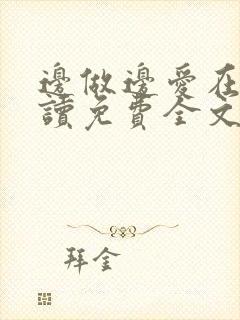 邊做邊愛在
讀免費全文
拜金